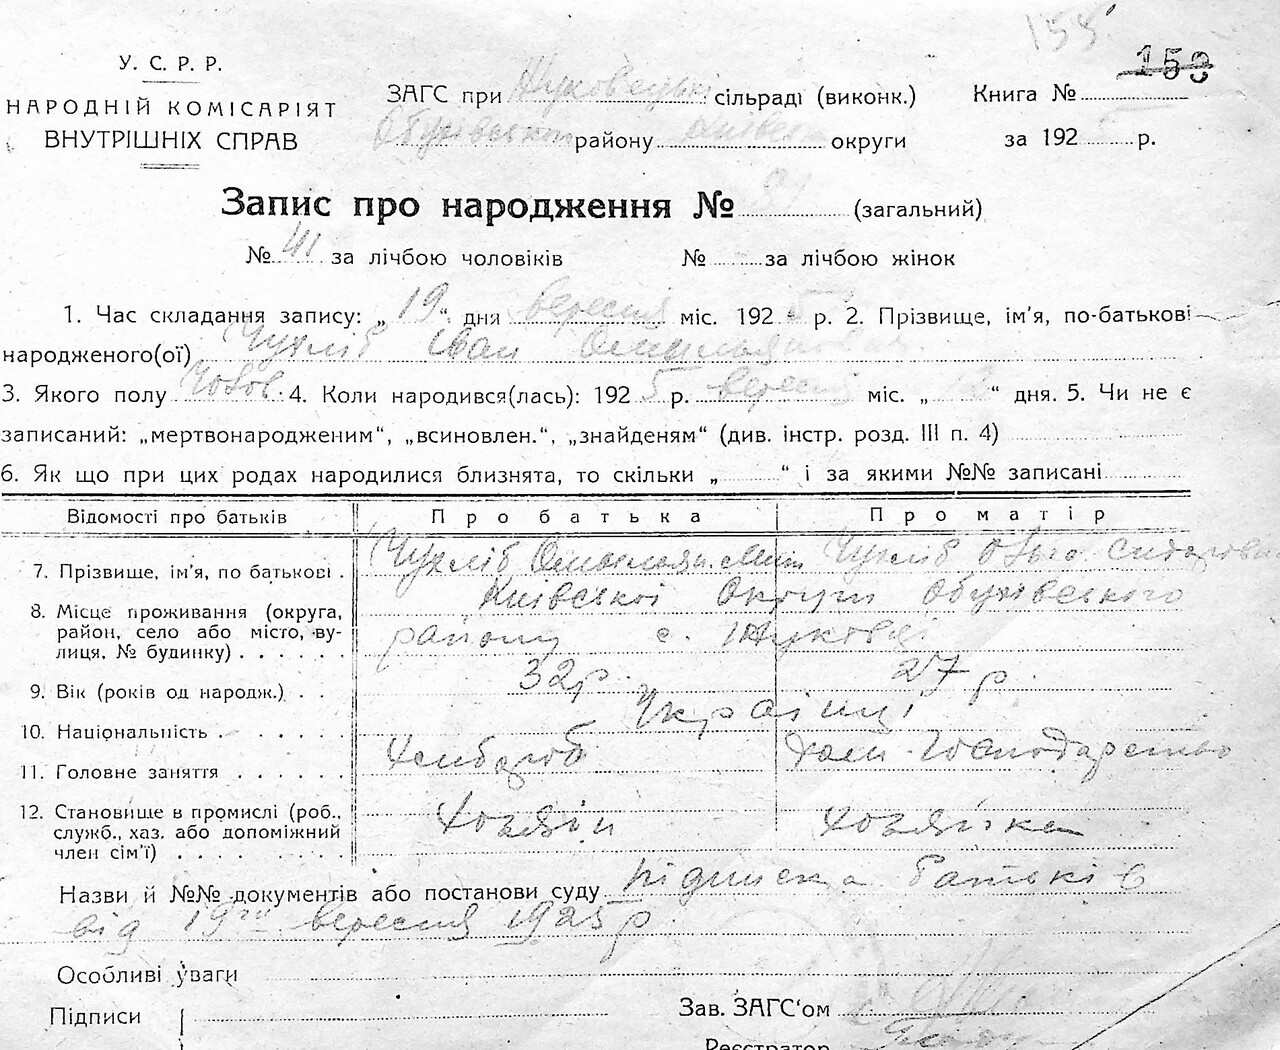 155
153
У. С. Р. Р.
НАРОДНІЙ КОМІСАРІЯТ
ВНУТРІШНІХ СПРАВ
ЗАГС при сільраді (виконк.) Книга №
Обухівського району Київської округи за 1925 р.
Запис про народження № (загальний)
№ 41 за лічбою чоловіків № за лічбою жінок
1. Час складання запису: „19“ дня вересня міс. 1925 р. 2. Прізвище, ім'я, по-батькові
народженого(ої) Чухліб Іван
3. Якого полу Чолов. 4. Коли народився(лась): 1925 р. вересня міс. „ “ дня. 5. Чи не є
записаний: „мертвонародженим“, „всиновлен.“, „знайденям“ (див. інстр. розд. III п. 4)
6. Як що при цих родах народилися близнята, то скільки „ “ і за якими №№ записані
Відомості про батьків Про батька Про матір
7. Прізвище, ім'я, по батькові . Чухліб Чухліб
8. Місце проживання (округа, район, село або місто, вулиця, № будинку) . . . . . . Київської Округи Обухівського
району с.
9. Вік (років од народж.) . . 32 р 27 р
10. Національність . . . . . . Українці
11. Головне заняття . . . . . . Хлібороб Господарство
12. Становище в промислі (роб., служб., хаз. або допоміжний член сім'ї) . . . . . . . . Хозяїн Хозяйка
Назви й №№ документів або постанови суду підписка батьків
від 19го вересня 1925 р
Особливі уваги
Підписи
Зав. ЗАГС'ом
Реєстратор